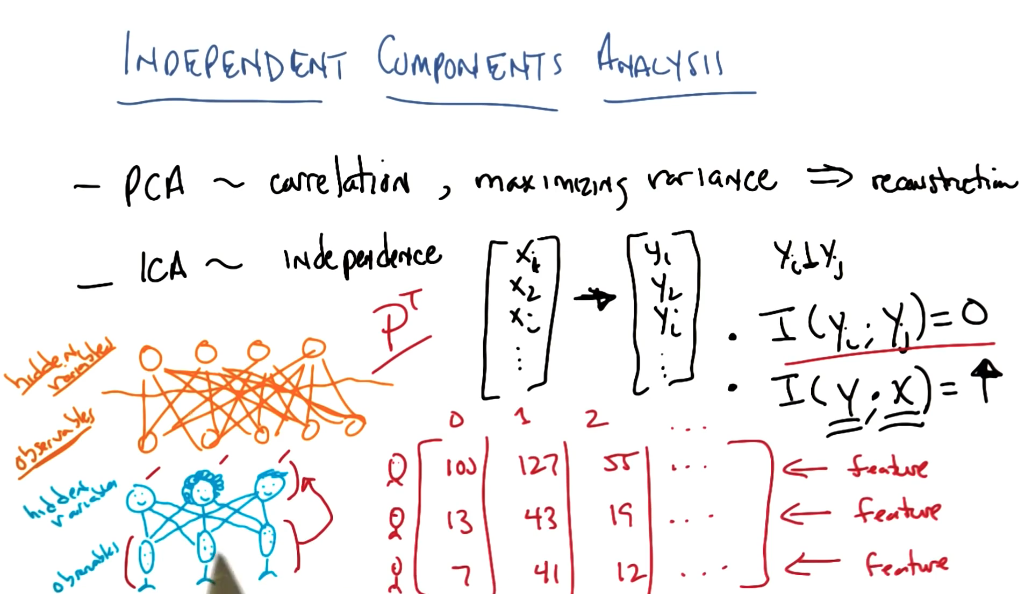 INDEPENDENT COMPONENTS ANALYSIS
- PCA ~ correlation, maximizing variance ⇒ reconstruction
- ICA ~ independence
x₁ → y₁
x₂ y₂
xᵢ yᵢ
⋮ ⋮
yᵢ ⊥ yⱼ
· I(yᵢ; yⱼ) = 0
· I(y; x) = ↑
Pᵀ
hidden variables
observables
hidden variables
observables
0 1 2 ...
100 127 55 ... ← feature
13 43 19 ... ← feature
7 41 12 ... ← feature